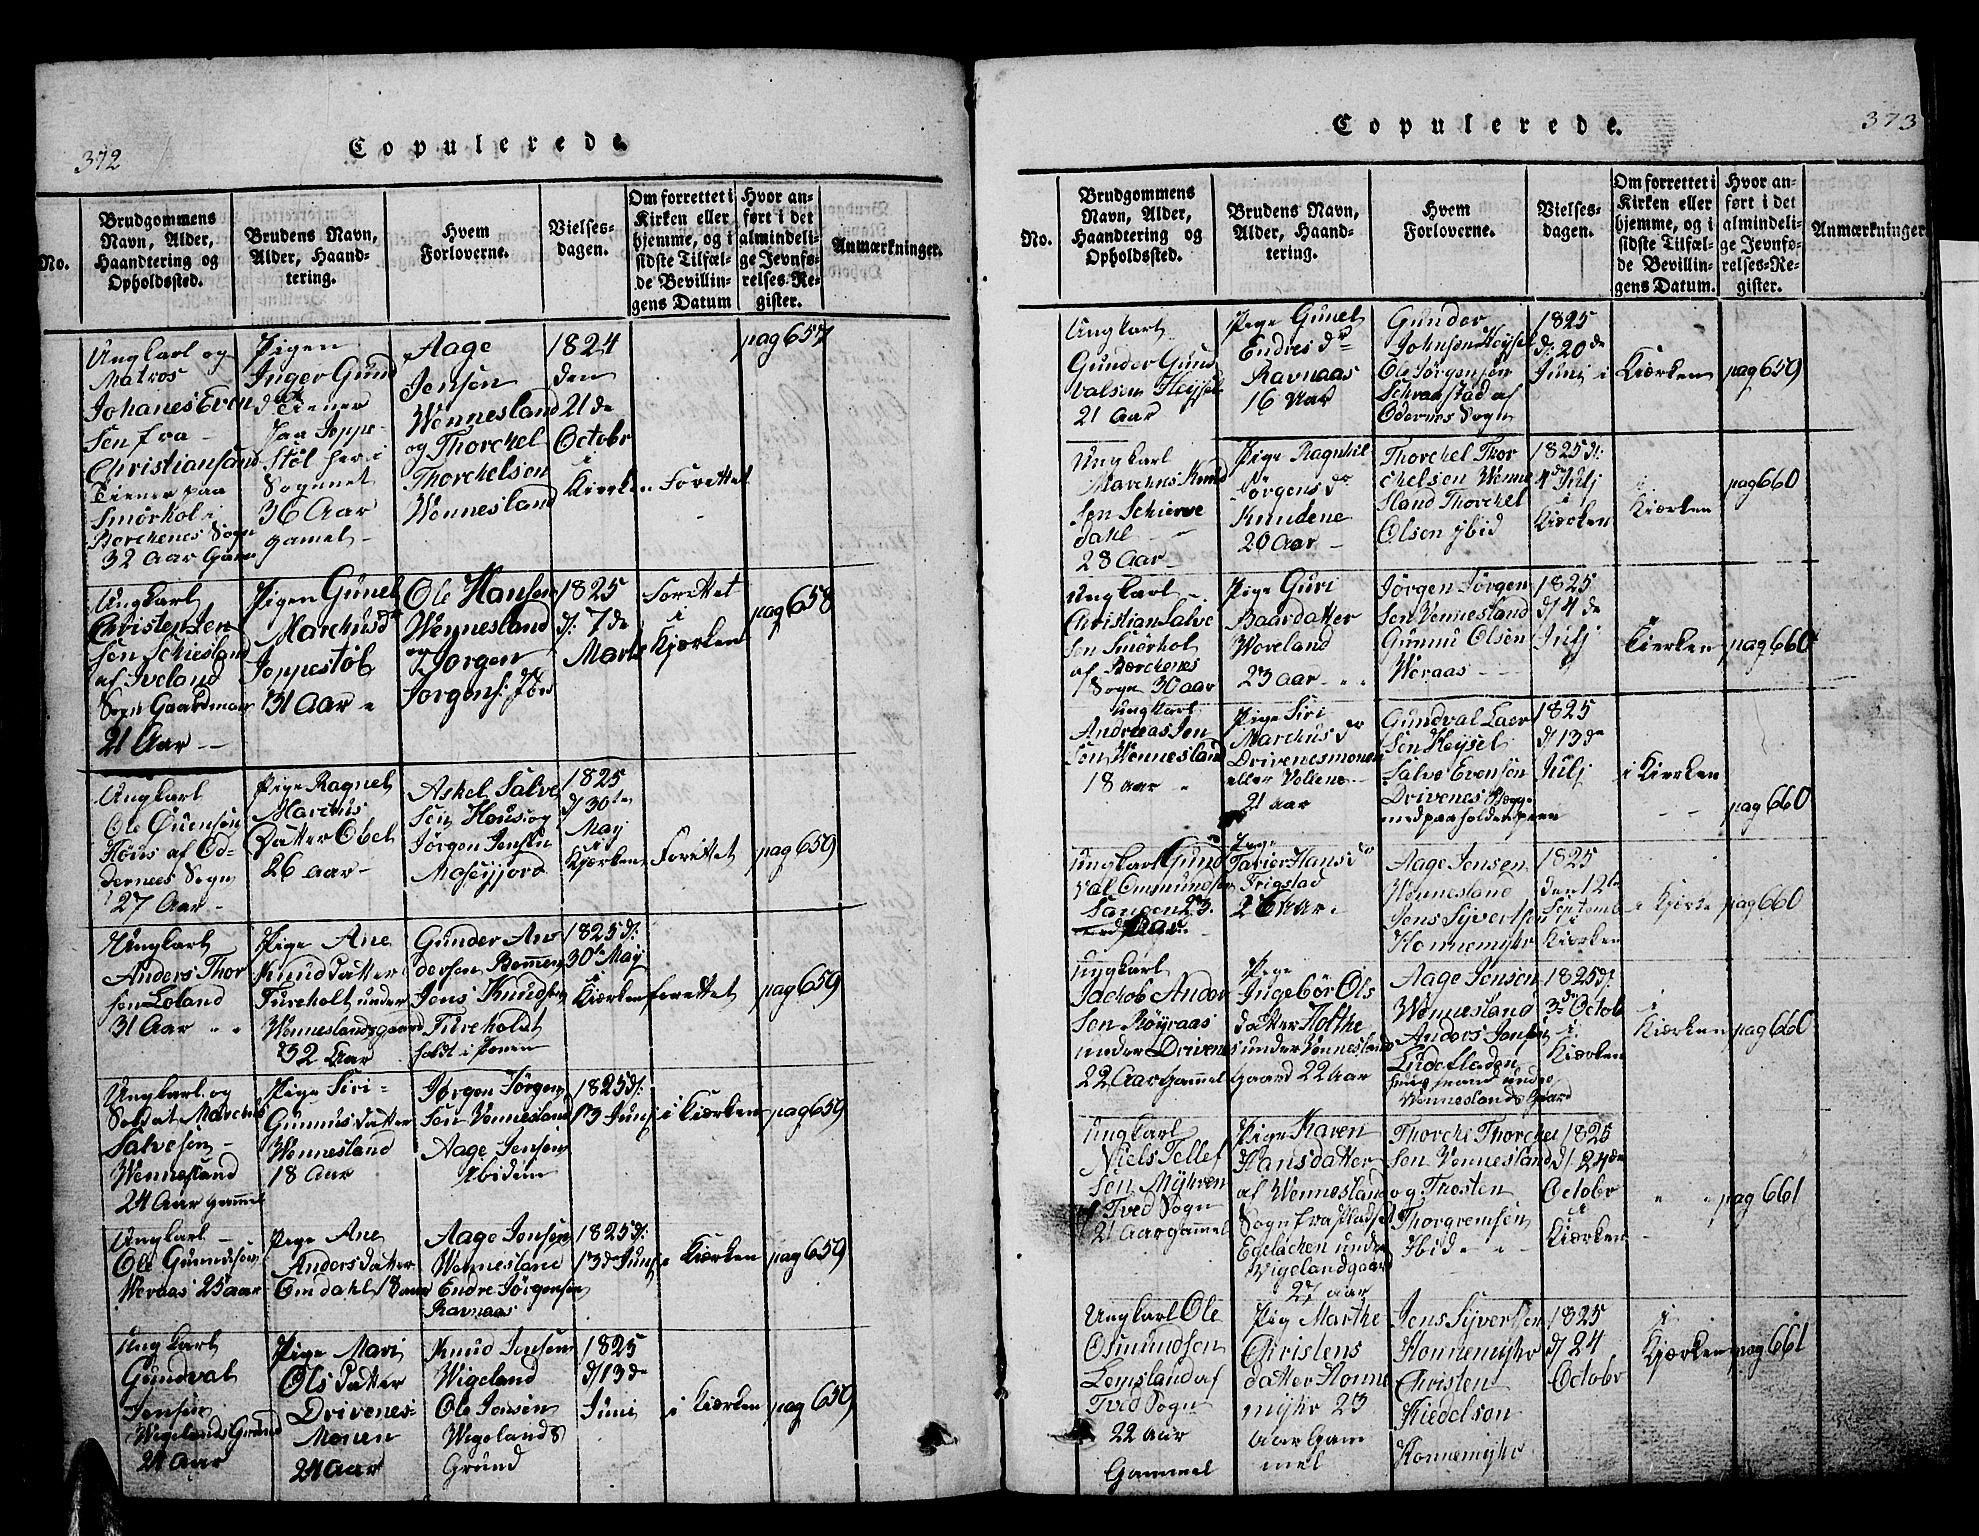 372
Copulerede.
No.
Brudgommens
Navn, Alder,
Haandtering og
Opholdssted.
Brudens Navn,
Alder, Haand-
tering.
Hvem
Forloverne.
Vielses-
dagen.
Om forrettet i
Kirken eller
hjemme, og i
sidste Tilfæl-
de Bevillin-
gens Datum
Hvor an-
ført i det
almindeli-
ge Jevnfø-
relses-Re-
gister.
Anmærkninger.
Ungkarl og
Matros
Johanes Even
Sen fra
Christiansand
Tiener paa
Smørkol i
Borchenes Sogn
32 Aar Gam
Pigen
Inger Gund
datter Tiener
paa Joppe-
støl her i
Sognet
36 Aar
gamel
Aage
Jensen
Wennesland
og Thorchel
Thorchelsen
Wennesland
1824
den
21de
Octobr
i
Kierken
Forettet
pag 657
Ungkarl
Christen Jen
Sen Schiesland
af Iveland
Sogn Gaardman
21 Aar
Pigen Günel
Marchusdr
Joppestøl
31 Aar
Ole Hansen
Wennesland
og Jørgen
Jørgens:
1825
d: 7de
Marts
Forettet
i
Kjørken
pag 658
Ungkarl
Ole
Høus af Od-
dernees Sogn
27 Aar
Pige Ragnel
Marchus
Datter Obel
26 Aar
Askel Salve
Sen Høus og
Jørgen Jensen
Moseyjord
1825
d/ 30te
May
i
Kjærken
Forettet
pag 659
Ungkarl
Anders Thor
sen Loland
31 Aar
Pige Ane
Knud Datter
Fureholt under
Wenneslandsgaard
32 Aar
Gunder An
dersen Bommen
Jens Knudsen
Fureholdt
1825 d:
30te May
i
Kiærken
forettet
pag 659
Ungkarl og
Soldat Marchus
Salvesen
Wennesland
24 Aar gammel
Pige Siri
Gunnus datter
Wennesland
18 Aar
Jørgen Jørgen
Sen Vennesland
Aage Jensen
Ibidem
1825 d:
13 Junj
i Kiærken
pag 659
Ungkarl
Ole Gunnusen
Weraas 25 aar
Pige Ane
Anders datter
Omdahl 18 aar
Aage Jensen
Wennesland
Endre Jørgensen
Ravnaas
1825 d:
13de Junj
i Kiærken
pag 659
Ungkarl
Gundval
Jensen
Wigelands Grund
24 Aar
Pige Mari
Ols Datter
Drivenes-
Monen
24 Aar
Knud Jensen
Wigeland
Ole Jensen
Wigelands
Grund
1825
d/ 13de
Juni
i Kiærken
pag 659
Copulerede.
373
No.
Brudgommens
Navn, Alder,
Haandtering og
Opholdssted.
Brudens Navn,
Alder, Haand-
tering.
Hvem
Forloverne.
Vielses-
dagen.
Om forrettet i
Kirken eller
hjemme, og i
sidste Tilfæl-
de Bevillin-
gens Datum.
Hvor an-
ført i det
almindeli-
ge Jevnfø-
relses-Re-
gister.
Anmærkninger.
Ungkarl
Gunder Gund
valsen Heysel
21 Aar
Pige Gunel
Endres dr
Ravnaas
16 Aar
Gunder
Johnsen Heysel
Ole Jørgensen
Schraastad af
Odernes Sogn
1825
d: 20de
Junj i
Kiærken
pag 659
Ungkarl
Marchus Knud
Sen Schierve
dahl
28 Aar
Pige Ragnhil
Jørgens dr
Knudene
20 Aar
Thorchel Thor
chelsen Wenne
sland Thorchel
Olsen ibid
1825 d:
4de Julj
i
Kiærken
i
Kiærken
pag 660
Ungkarl
Christian Salve
Sen Smørkol
af Borchenes
Sogn 30 aar
Pige Guri
Baardatter
Woreland
23 aar
Jørgen Jørgen
Sen Vennesland
Gunnu Olsen
Weraas
1825
d/ 4de
Julj
Kierken
pag 660
Ungkarl
Andreas Jen
Sen Wennesland
18 aar
Pige Siri
Marchus dr
Drivenesmonen
eller Vollene
21 aar
Gundval Laer
Sen Heysel
Salve Evensen
Drivenes Begge
1825
d/ 13de
Julj
i Kierken
pag 660
Ungkarl Gund
val Omundsen
23
Aar
Pige
Tarier Hans dr
Frigstad
26 Aar
Aage Jensen
Wennesland
Jens Syverts
Honnemyhr
1825
den 12te
Septemb
i
Kiærken
i Kjørke
pag 660
Ungkarl
Jachob Ander
Sen Røyraas
under Drivenes
22 Aar Gammel
Pige
Ingebør Ols
datter Holthe
under Vennesland
Gaard 22 Aar
Aage Jensen
Wennesland
Anders Jensen
Ludefladen
Huusmand under
Wenneslands Gaard
1825 d:
3de Octob
i
Kiærken
i
Kiærken
pag 660
Ungkarl
Niels Tellef
Sen Myhren
af Tved Sogn
21 Aar gammel
Pige Karen
Hansdatter
af Wennesland
Sogn fra Pladset
Egelachen under
Vigelandgaard
27 aar
Thorchel Thorchel
Sen Vennesland
og Thosten
Thorgremsen
Ibid
1825
d/ 24de
Octobr
i
Kiærken
" "
pag 661
Ungkarl Ole
Osmundsen
Lemsland af
Tved Sogn
22 aar
Gammel
Pig Marthe
Christens
datter Honne
myhr 23
aar Gam
mel
Jens Syversen
Honnemyhr
Christen
Kieddelsen
Honnemyhr
1825
d/ 24
Octobr
i
Kjærken
pag 661